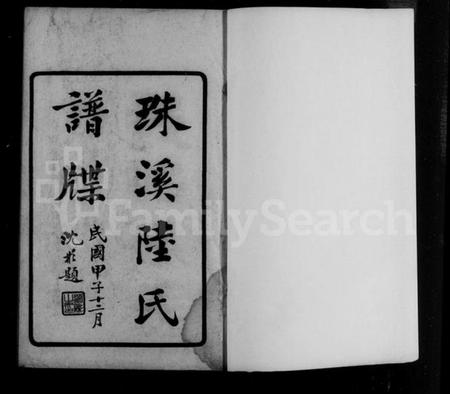 珠溪陸氏
譜牒
民國甲子十二月
沈彬題
FamilySearch